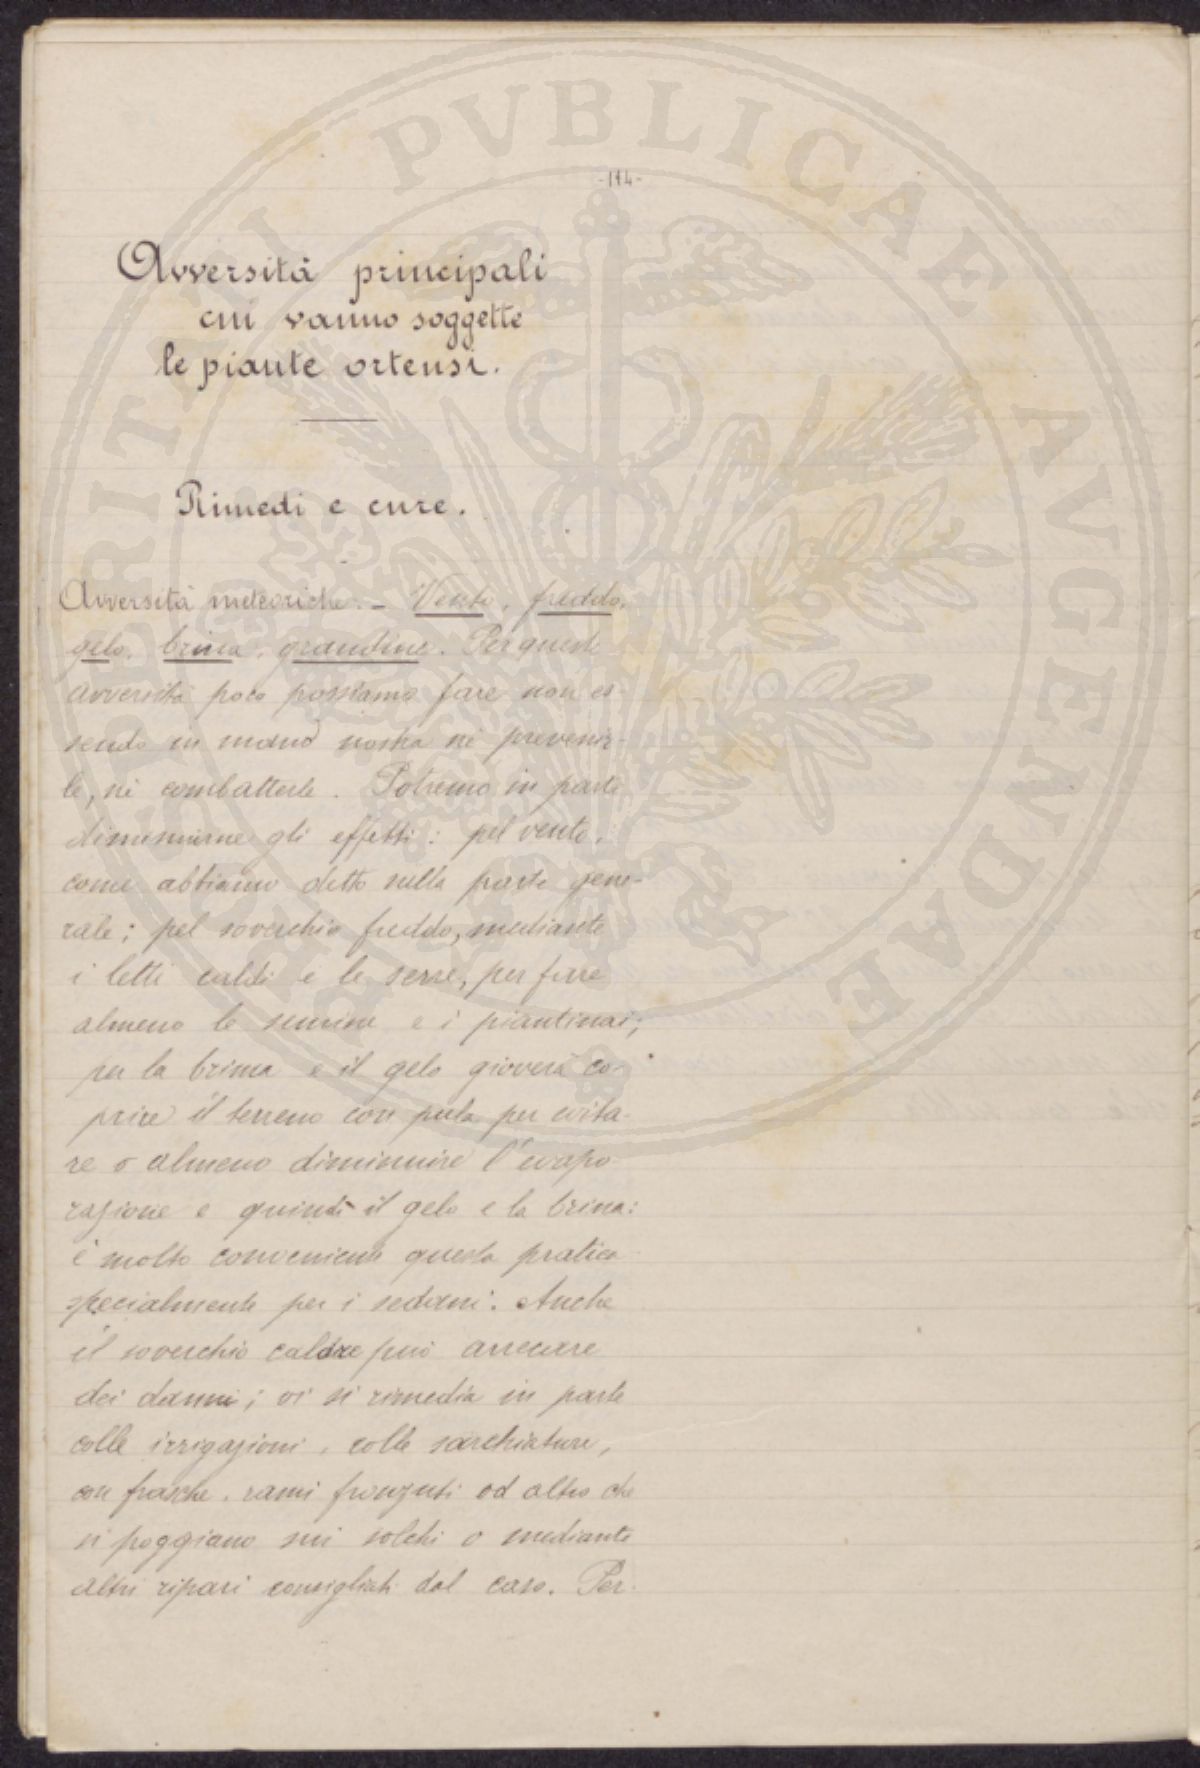 -114-
Avversità principali
cui vanno soggette
le piante ortensi.
Rimedi e cure.
Avversità meteoriche. - Vento, freddo,
gelo, brina, grandine. Per queste
avversità poco possiamo fare non es-
sendo in mano nostra nè prevenir-
le, nè combatterle. Potremo in parte
diminuirne gli effetti: pel vento,
come abbiamo detto nella parte gene-
rale; pel soverchio freddo, mediante
i letti caldi e le serre, per farre
almeno le semine e i piantinai;
per la brina e il gelo gioverà co-
prire il terreno con pula per evita-
re o almeno diminuire l'evapo-
razione e quindi il gelo e la brina:
è molto conveniente questa pratica
specialmente per i sedani. Anche
il soverchio calore può arrecare
dei danni; vi si rimedia in parte
colle irrigazioni, colle sarchiature,
con frasche, rami fronzuti od altro che
si poggiano sui solchi o mediante
altri ripari consigliati dal caso. Per-
PROSPERITATI PVBLICAE AVGENDAE